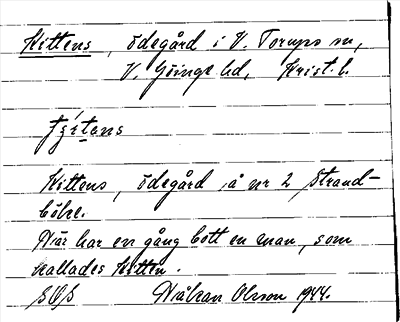 Kittens, ödegård i V. Torups sn,
V. Göinge hd, Krist. l.
Kittens, ödegård å nr 2 Strand-
böke.
Här har en gång bott en man, som
kallades Kitten.
Håkan Olsson 1944.